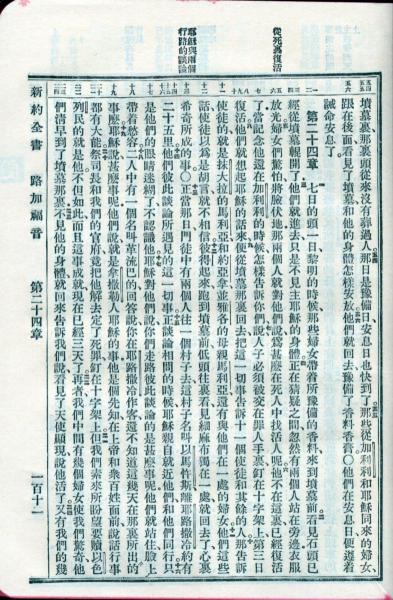 從死裏復活
耶穌與兩個
行路的談論
墳墓裏那裏頭從來沒有葬過人那日是豫備日安息日也快到了那些從加利利和耶穌同來的婦女
跟在後面看見了墳墓和他的身體怎樣安放他們就回去豫備了香料香膏○他們在安息日便遵着
誡命安息了
第二十四章 七日的頭一日黎明的時候那些婦女帶着所豫備的香料來到墳墓前看見石頭已
經從墳墓輥開了他們就進去只是不見主耶穌的身體正在猜疑之間忽然有兩個人站在旁邊衣服
放光婦女們懼怕將臉伏地那兩個人就對他們說爲甚麽在死人中找活人呢他不在這裏已經復活
了當記念他還在加利利的時候怎樣告訴你們說人子必須被交在罪人手裏釘在十字架上第三日
復活他們就想起耶穌的話來便從墳墓那裏回去把這一切事告訴十一個使徒和其餘的人那告訴
使徒的就是抹大拉的馬利亞和約亞拿並雅各的母親馬利亞還有與他們在一處的婦女他們這些
話使徒以爲是胡言就不相信彼得起來跑到墳墓前低頭往裏看見細麻布獨在一處就回去了心裏
希奇所成的事○正當那日門徒中有兩個人往一個村子去這村子名叫以馬忤斯離耶路撒冷約有
二十五里他們彼此談論所遇見的這一切事正談論相問的時候耶穌親自就近他們和他們同行只
是他們的眼睛迷糊了不認識他耶穌對他們說你們走路彼此談論的是甚麽事呢他們就站住臉上
帶着愁容二人中有一個名叫革流巴的回答說你在耶路撒冷作客還不知道這幾天在那裏所出的
事麽耶穌說甚麽事呢他們說就是拿撒勒人耶穌的事他是個先知在上帝和衆百姓面前說話行事
都有大能祭司長和我們的官府竟把他解去定了死罪釘在十字架上但我們素來所盼望要贖以色
列民的就是他不但如此而且這事成就現在已經三天了再者我們中間有幾個婦女使我們驚奇他
們清早到了墳墓那裏不見他的身體就回來告訴我們說看見了天使顯現說他活了又有我們的幾
新約全書 路加福音 第二十四章 一百十二